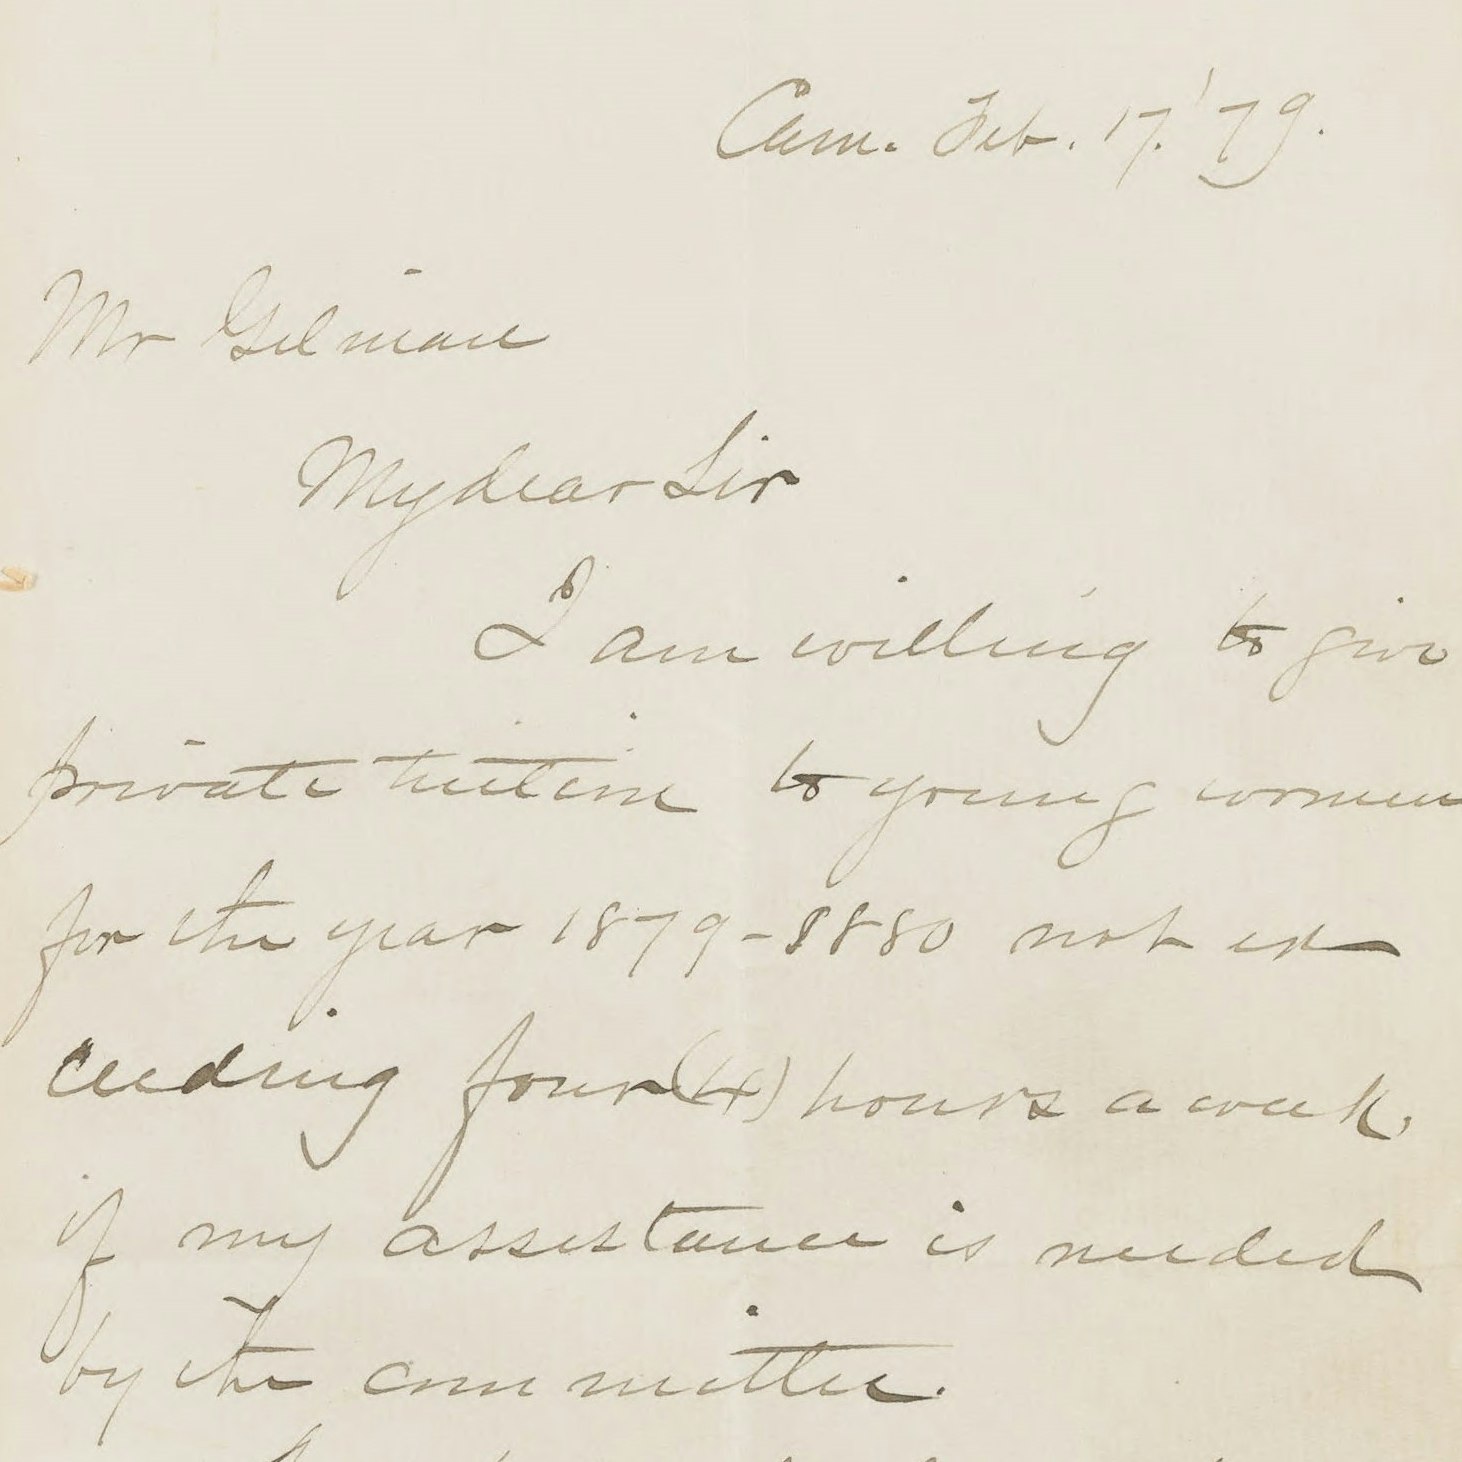 Cam. Feb. 17. '79.
Mr Gilman
My dear Sir
I am willing to give
private tuition to young women
for the year 1879-1880 not ex-
ceeding four (4) hours a week,
if my assistance is needed
by the committee.